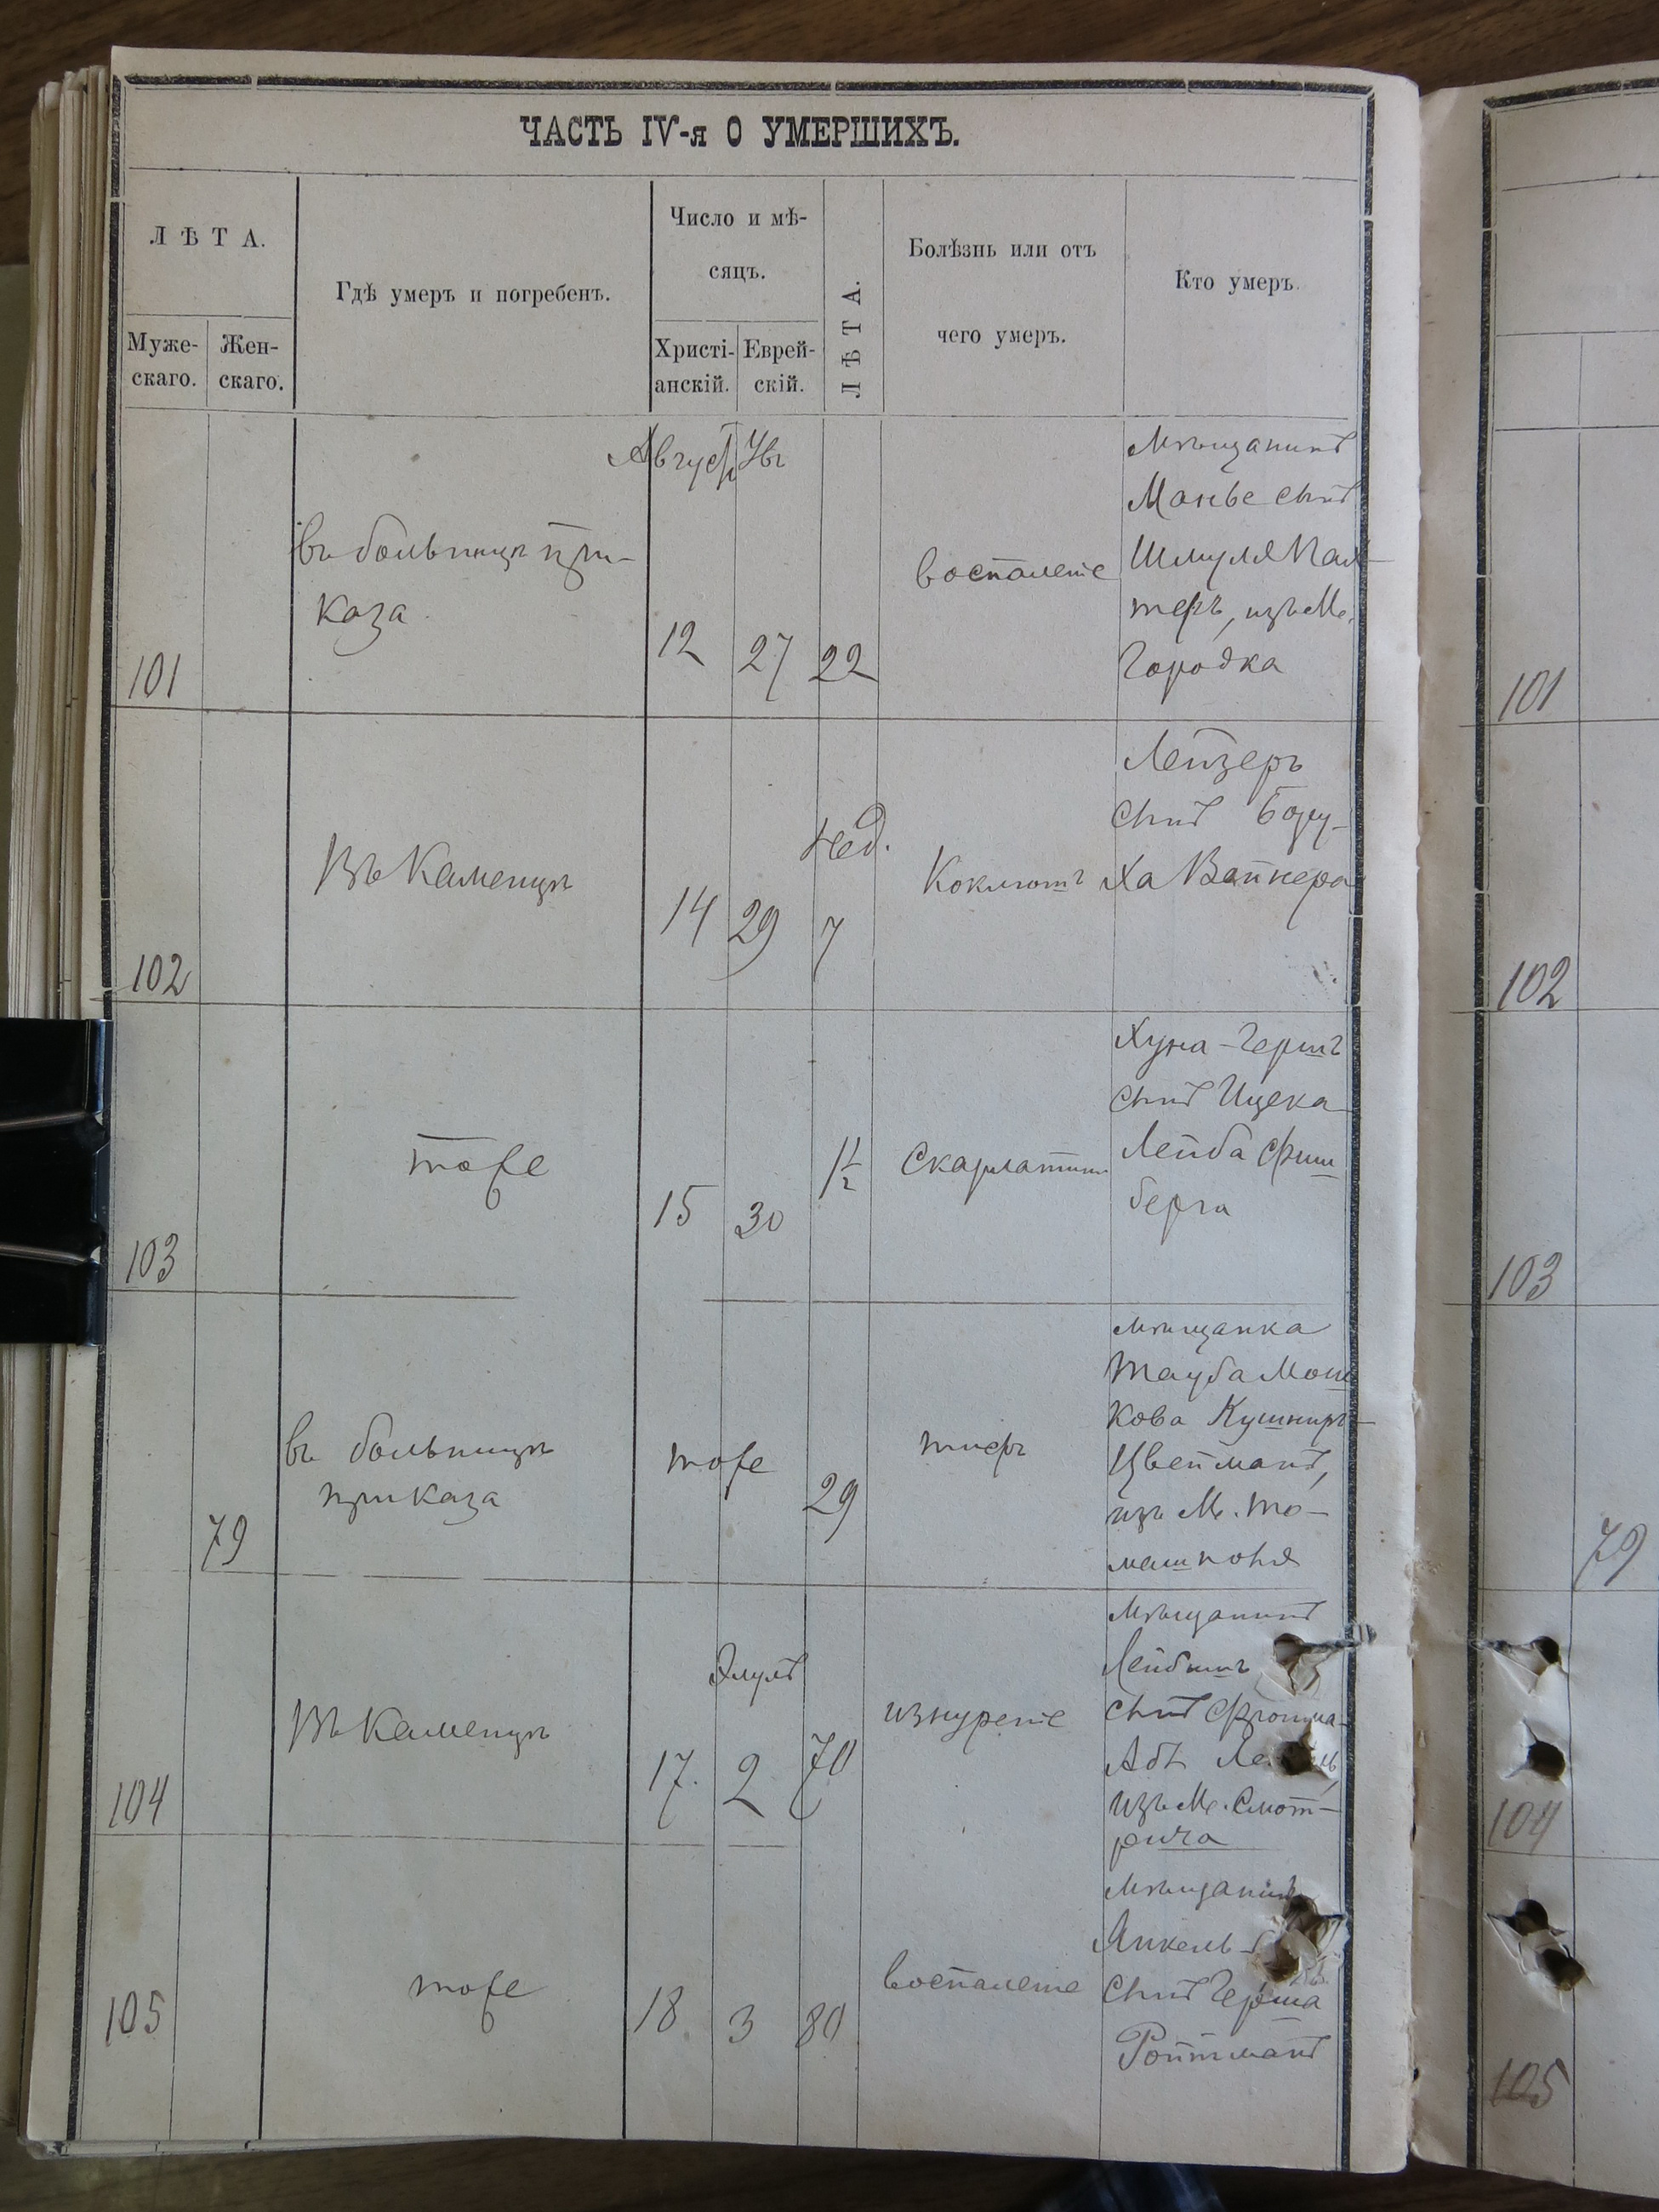 ЧАСТЬ IV-я О УМЕРШИХЪ.
ЛѢТА.
Муже-
скаго.
Жен-
скаго.
Гдѣ умеръ и погребенъ.
Число и мѣ-
сяцъ.
Христі-
анскій.
Еврей-
скій.
ЛѢТА.
Болѣзнь или отъ
чего умеръ.
Кто умеръ.
101
въ больницѣ при-
каза
Августъ
12
27
22
воспаленіе
Мѣщанинъ
сынъ
Шмуля
изъ М.
Городка
101
102
Въ Каменцѣ
14
29
Нед.
7
Коклюшъ
Лейзеръ
сынъ Бору-
ха Вайнера
102
103
тоже
15
30
1½
Скарлатина
Хуна-Гершъ
сынъ Ицека
Лейба Фиш
берга
103
79
въ больницѣ
приказа
тоже
29
тифъ
мѣщанка
Тауба Мош
кова Кушниръ-
Цвейманъ,
изъ М. То-
машполя
79
104
Въ Каменцѣ
Элулъ
17.
2
70
изнуреніе
Мѣщанинъ
Лейбишъ
сынъ
изъ М. Смот-
рича
104
105
тоже
18.
3
80
воспаленіе
Мѣщанинъ
Янкель
сынъ Герша
Ройтманъ
105